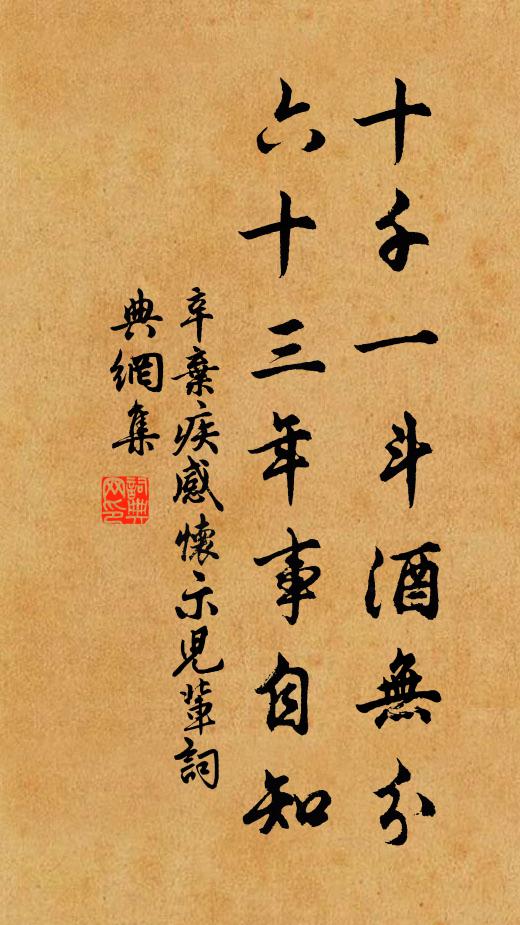 十千一斗酒無分
六十三年事自知
辛棄疾感懷示兒輩詞
典網集
詞典
网印